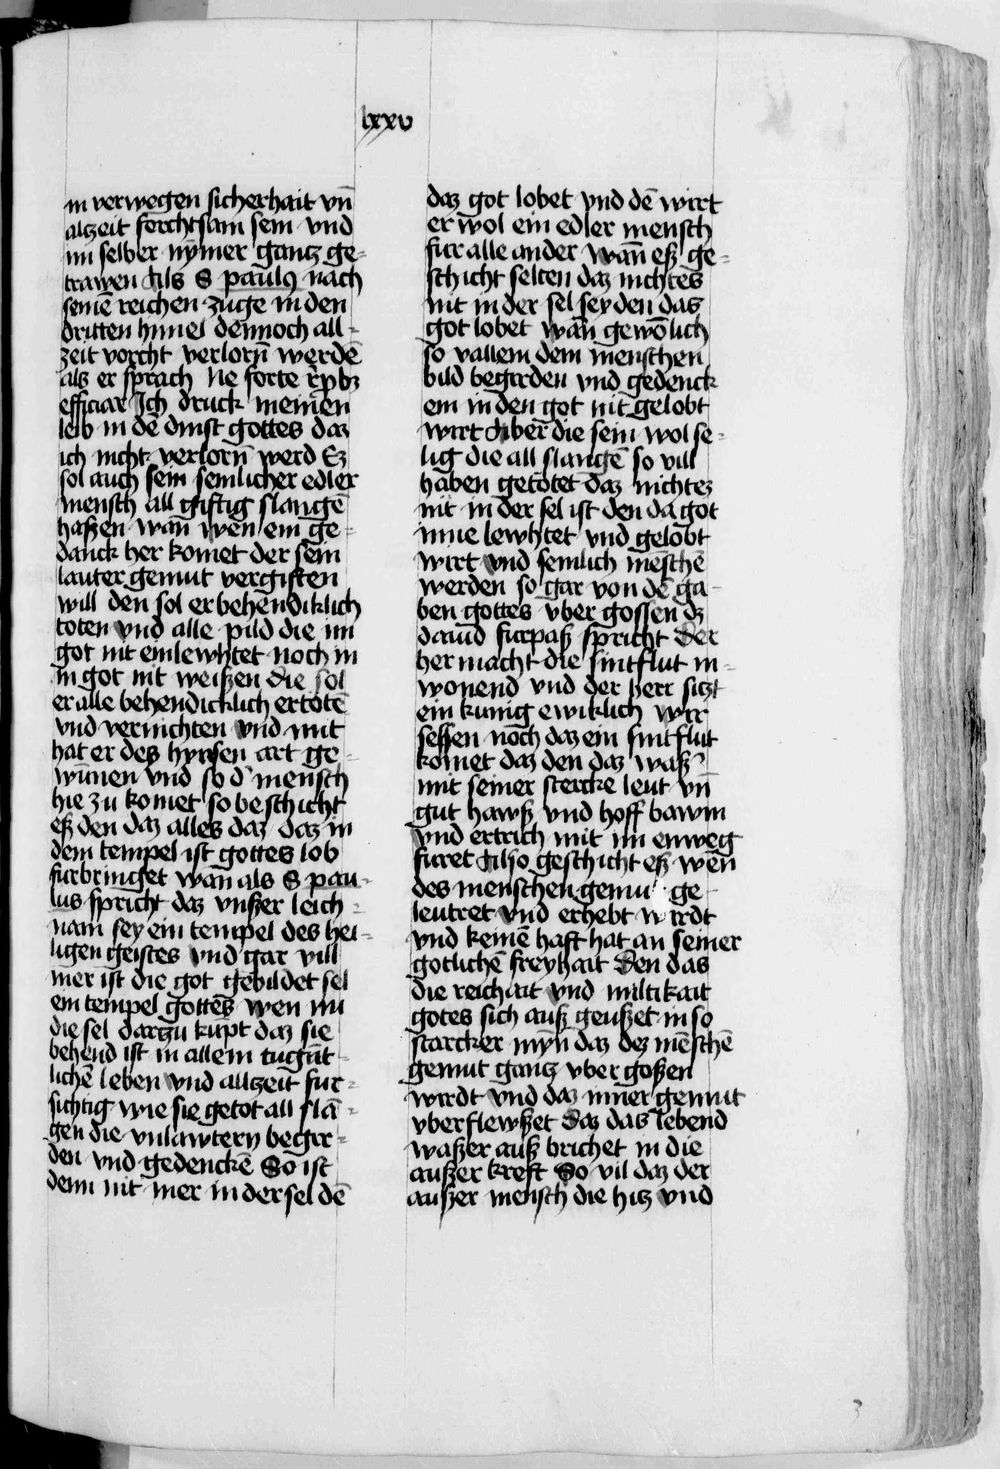 lxxv
in verwegen sicherhait vn̄
alczeit forchtsam sein vnd
im selber nymer gancz ge-
trawen Als S paulꝰ nach
seinē reichen zuge in den
dritten himel dennoch all-
zeit vorcht verlorn̄ werdē
als er sprach Ne forte rēpbꝫ
efficiar Ich druck meinen
leib in dē dinst gottes daz
ich nicht verlorn̄ werd Eꝫ
sol auch sein semlicher edler
mensch all giftig slangē
haßen wan̄ wen ein ge-
danck her komet der sein
lauter gemut vergiften
will den sol er behendiklich
toten vnd alle pild die im
got nit einlewhtet noch in
in got nit weißen die sol
er alle behendicklich ertotē
vnd vernichten vnd mit
hat er des hyrsen art ge-
wūnen vnd so d᷑ mensch
hie zu komet so beschicht
eß den daz alles daz daz in
dem tempel ist gottes lob
furbringet wan̄ als S pau-
lus spricht daz vnßer leich-
nam sey ein tempel des hei-
ligen geistes vnd gar vill
mer ist die got gebildet sel
ein tempel gottes wen nu
die sel darzu kūpt daz sie
behend ist in allem tugūt-
lichē leben vnd allzeit fur-
sichtig wie sie getot all slā-
gen die vnlawtern begir-
den vnd gedenckē So ist
denn nit mer in der sel dē
daz got lobet vnd dē wirt
er wol ein edler mensch
fur alle ander wan̄ eß ge-
schicht selten daz nichtes
nit in der sel sey den das
got lobet wan̄ gewōlich
so vallem dem menschen
bild begirden vnd gedenck
ein in den got nit gelobt
wirt Aber die sein wol se-
lig die all slangē so vill
haben getötet daz nichtez
nit in der sel ist den da got
inne lewhtet vnd gelobt
wirt vnd semlich mēschē
werden so gar von dē ga-
ben gottes vber gossen dz
dauid furpaß spricht Der
her macht die sintflut in-
wonend vnd der herr siczt
ein kunig ewiklich wir
sehen noch daz ein sintflut
komet daz den daz waß᷑
mit seiner stercke leut vn̄
gut hawß vnd hoff bawm
vnd ertrich mit im enweg
furet Also geschicht eß wen̄
des menschen gemut ge-
leutret vnd erhebt wirdt
vnd keinē haft hat an seiner
gotlichē freyhait Den das
die reichait vnd miltikait
gotes sich auß geußet in so
starcker myn̄ daz dez mēschē
gemut gancz vber goßen
wirdt vnd daz inner gemut
vberflewßet Daz das lebend
waßer auß brichet in die
außer kreft So vil daz der
außer mensch die hicz vnd